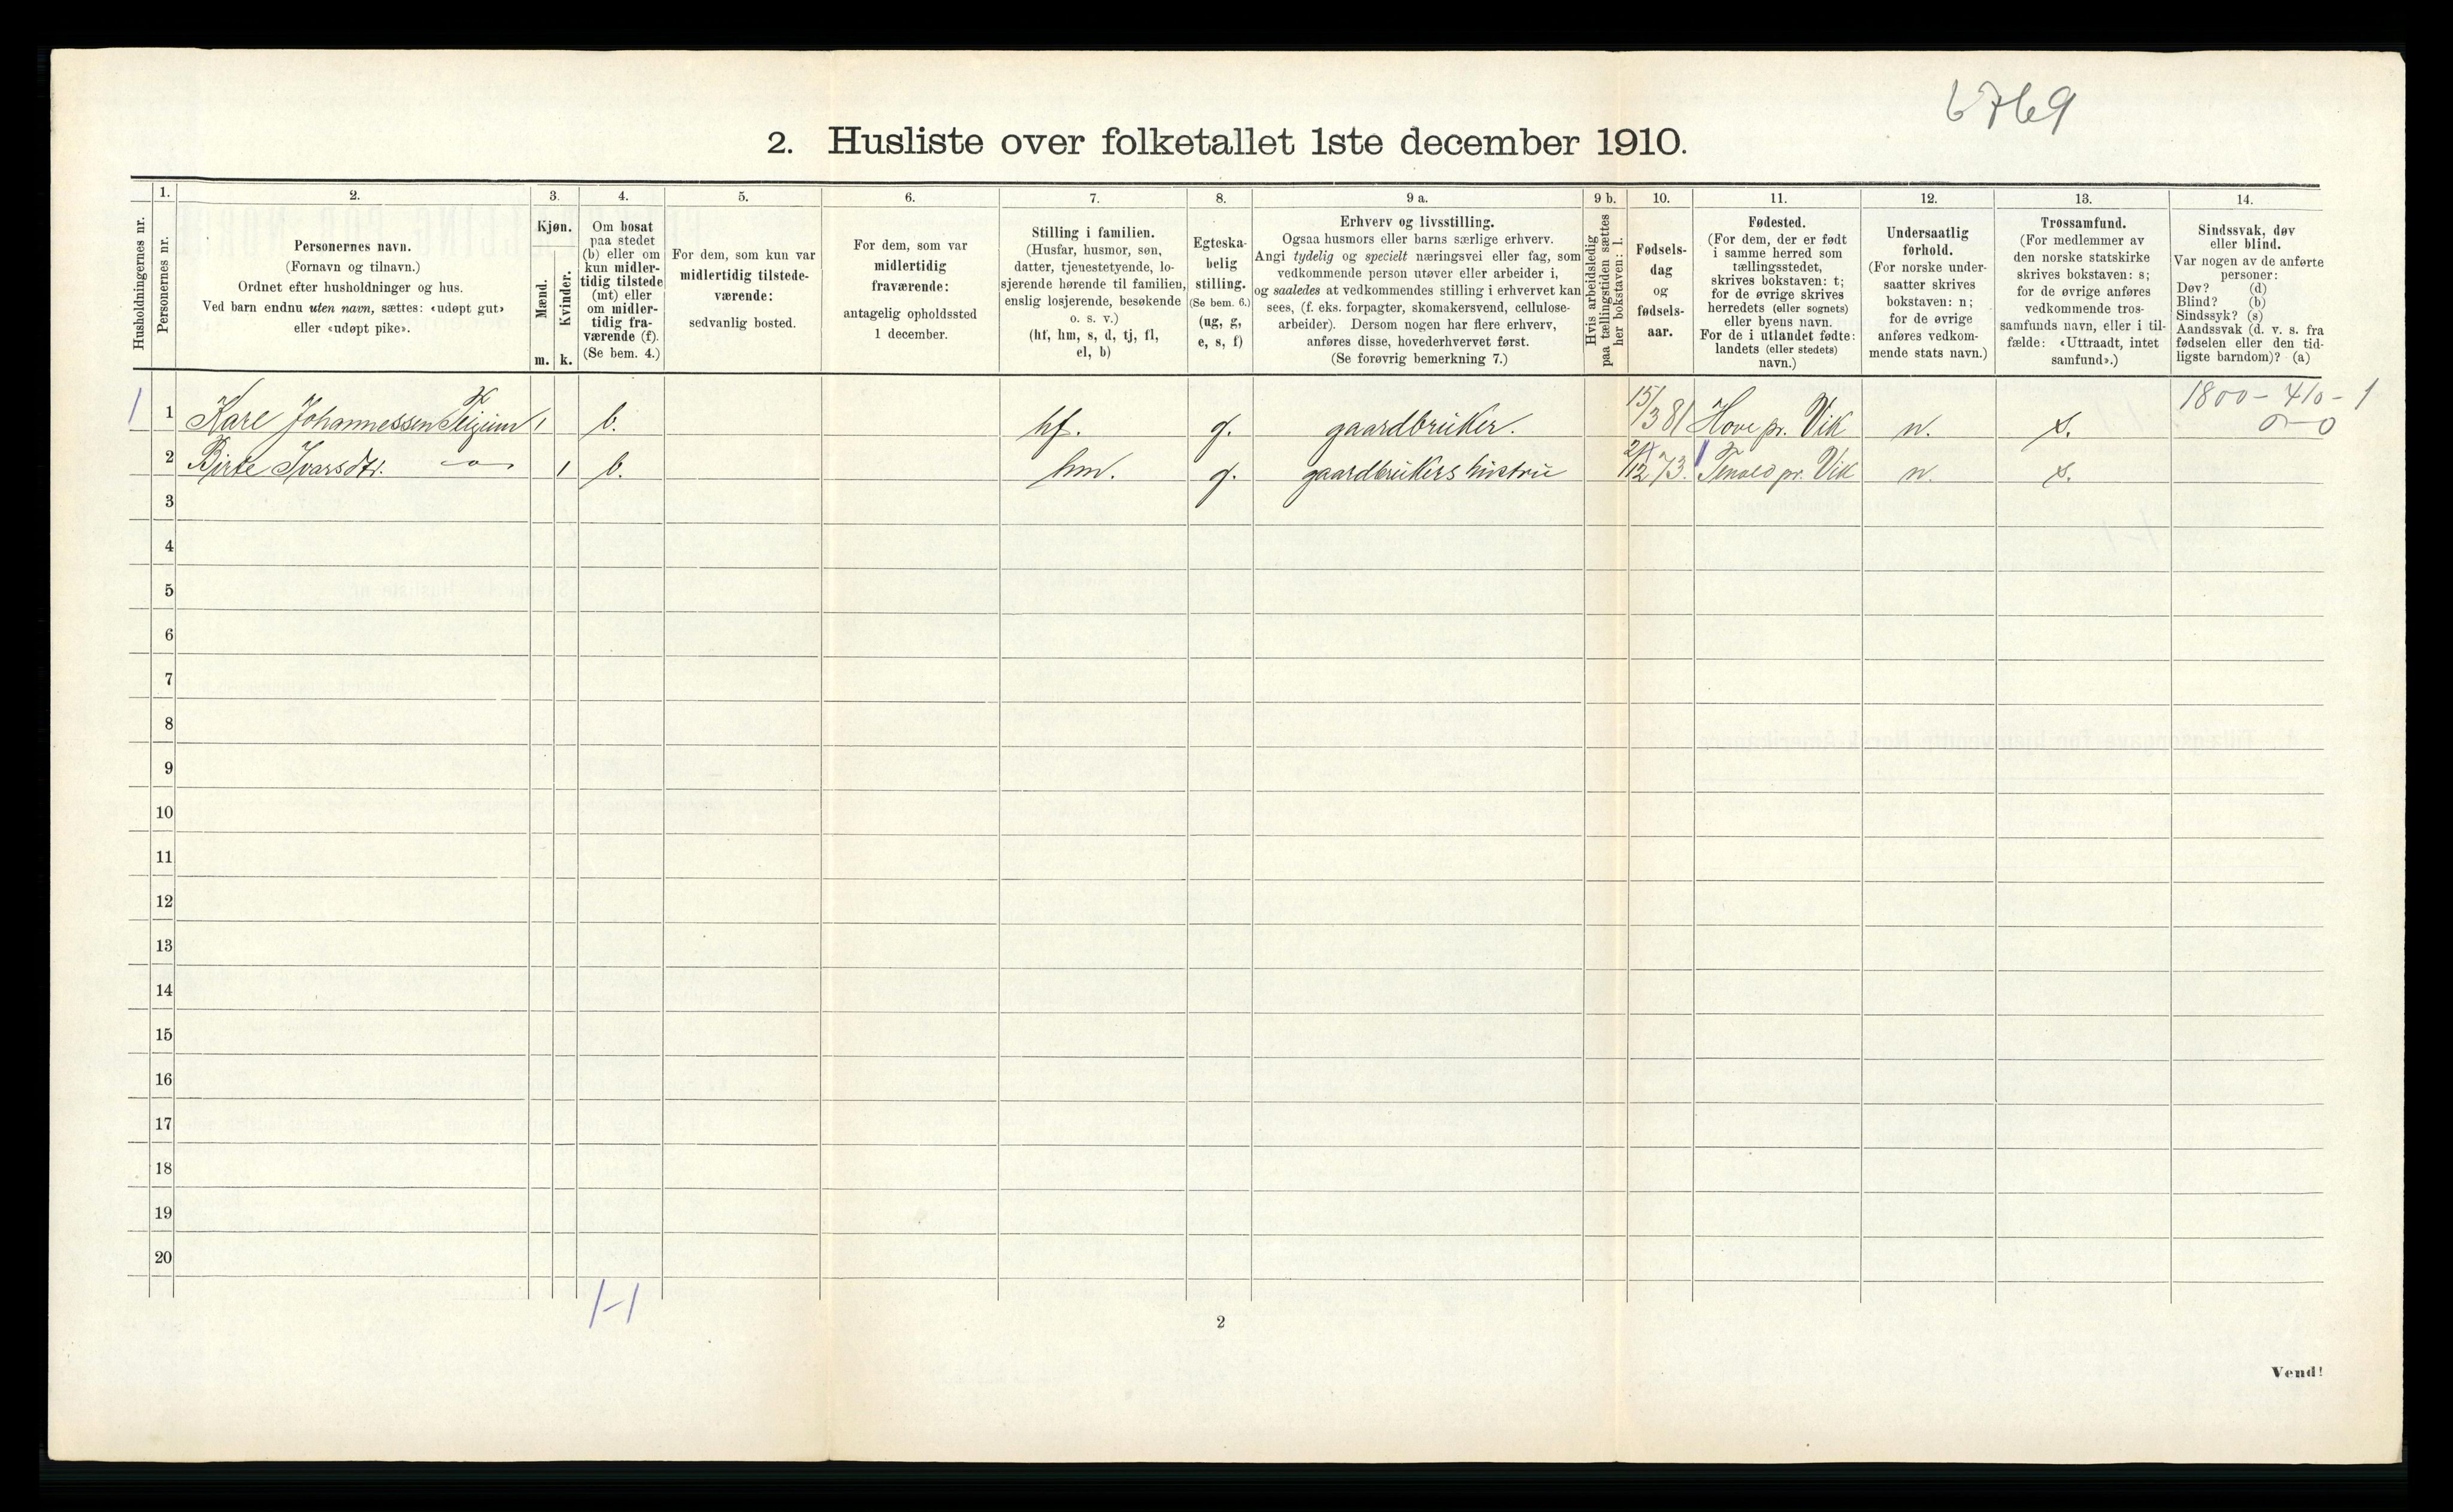 6769
2. Husliste over folketallet 1ste december 1910.
Husholdningernes nr.
1.
Personernes nr.
2.
Personernes navn.
(Fornavn og tilnavn.)
Ordnet efter husholdninger og hus.
Ved barn endnu uten navn, sættes: «udøpt gut»
eller «udøpt pike».
3.
Kjøn.
Mænd.
Kvinder.
m. k.
4.
Om bosat
paa stedet
(b) eller om
kun midler-
tidig tilstede
(mt) eller
om midler-
tidig fra-
værende (f).
(Se bem. 4.)
5.
For dem, som kun var
midlertidig tilstede-
værende:
sedvanlig bosted.
6.
For dem, som var
midlertidig
fraværende:
antagelig opholdssted
1 december.
7.
Stilling i familien.
(Husfar, husmor, søn,
datter, tjenestetyende, lo-
sjerende hørende til familien,
enslig losjerende, besøkende
o. s. v.)
(hf, hm, s, d, tj, fl,
el, b)
8.
Egteska-
belig
stilling.
(Se bem. 6.)
(ug, g,
e, s, f)
9 a.
Erhverv og livsstilling.
Ogsaa husmors eller barns særlige erhverv.
Angi tydelig og specielt næringsvei eller fag, som
vedkommende person utøver eller arbeider i,
og saaledes at vedkommendes stilling i erhvervet kan
sees, (f. eks. forpagter, skomakersvend, cellulose-
arbeider). Dersom nogen har flere erhverv,
anføres disse, hovederhvervet først.
(Se forøvrig bemerkning 7.)
9 b.
Hvis arbeidsledig
paa tællingstiden sættes
her bokstaven: l.
10.
Fødsels-
dag
og
fødsels-
aar.
11.
Fødested.
(For dem, der er født
i samme herred som
tællingsstedet,
skrives bokstaven: t;
for de øvrige skrives
herredets (eller sognets)
eller byens navn.
For de i utlandet fødte:
landets (eller stedets)
navn.)
12.
Undersaatlig
forhold.
(For norske under-
saatter skrives
bokstaven: n;
for de øvrige
anføres vedkom-
mende stats navn.)
13.
Trossamfund.
(For medlemmer av
den norske statskirke
skrives bokstaven: s;
for de øvrige anføres
vedkommende tros-
samfunds navn, eller i til-
fælde: «Uttraadt, intet
samfund».)
14.
Sindssvak, døv
eller blind.
Var nogen av de anførte
personer:
Døv? (d)
Blind? (b)
Sindssyk? (s)
Aandssvak (d. v. s. fra
fødselen eller den tid-
ligste barndom)? (a)
1800 - 410 - 1
0-0
1 1 Karl Johannessen 1 b. hf. g. gaardbruker. 15/3 81 Hove pr. Vik n. s.
2 Birte Ivarsdtr. -"- 1 b. hm. g. gaardbrukers hustru /12 73. pr. Vik n. s.
3
4
5
6
7
8
9
10
11
12
13
14
15
16
17
18
19
20
1-1
2
Vend!